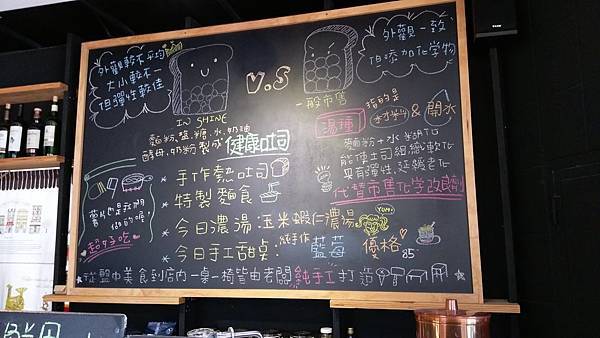 外觀較不平均
大小較不一
但彈性較佳
V.S
外觀一致、
但添加化学物
IN SHINE
麵粉、鹽、糖、水、奶油
酵母、奶粉 製成 健康吐司
一般市售
湯種 指的是 麵粉 & 開水
麵粉+水 糊化
能使土司組織軟化
具有彈性、延緩老化
代替市售化学改良劑
* 手作麵吐司
* 特製麵食
* 今日濃湯:玉米蝦仁濃湯
YUMI
* 今日手工甜桌:純手作 藍莓 優格 85
超好吃
* 從盤中美食到店內一桌一椅皆由老闆純手工打造